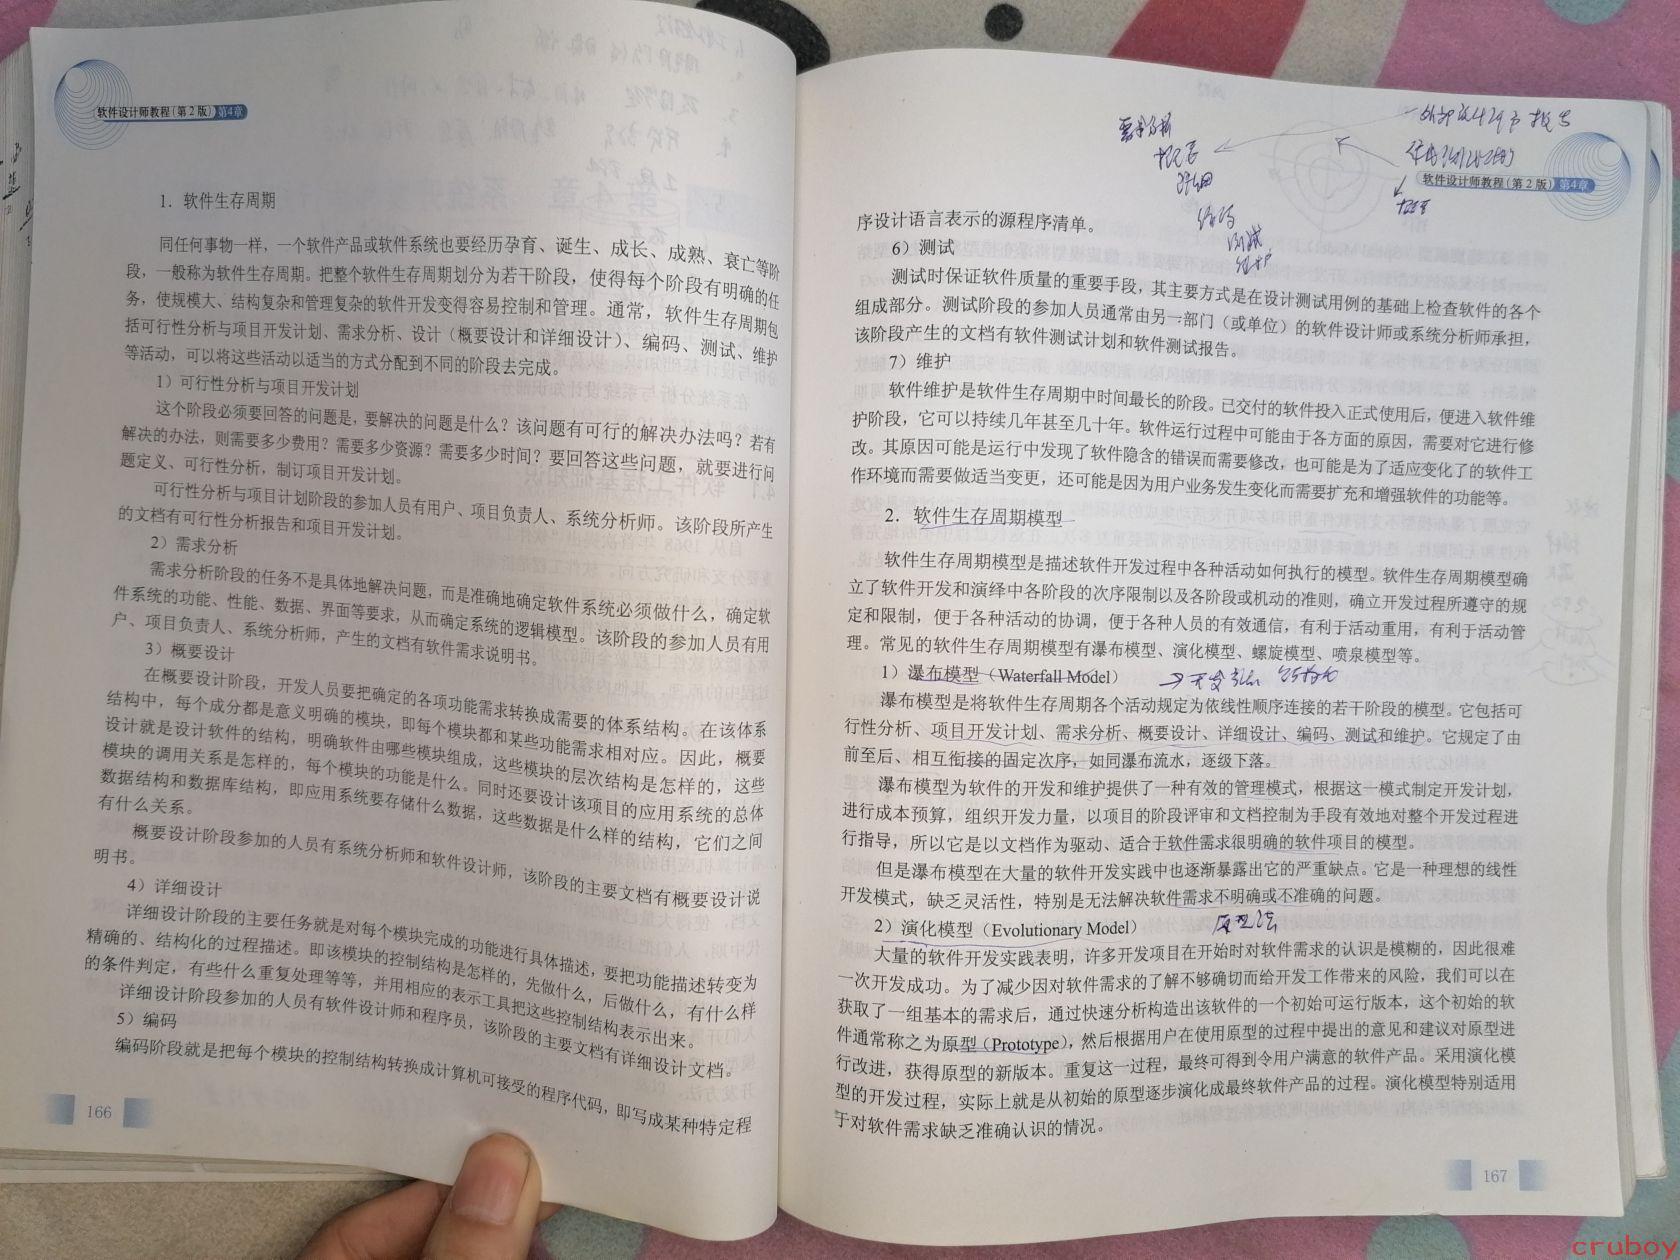 软件设计师教程(第2版) 第4章
1．软件生存周期
同任何事物一样，一个软件产品或软件系统也要经历孕育、诞生、成长、成熟、衰亡等阶
段，一般称为软件生存周期。把整个软件生存周期划分为若干阶段，使得每个阶段有明确的任
务，使规模大、结构复杂和管理复杂的软件开发变得容易控制和管理。通常，软件生存周期包
括可行性分析与项目开发计划、需求分析、设计（概要设计和详细设计）、编码、测试、维护
等活动，可以将这些活动以适当的方式分配到不同的阶段去完成。
1）可行性分析与项目开发计划
这个阶段必须要回答的问题是，要解决的问题是什么？该问题有可行的解决办法吗？若有
解决的办法，则需要多少费用？需要多少资源？需要多少时间？要回答这些问题，就要进行问
题定义、可行性分析，制订项目开发计划。
可行性分析与项目计划阶段的参加人员有用户、项目负责人、系统分析师。该阶段所产生
的文档有可行性分析报告和项目开发计划。
2）需求分析
需求分析阶段的任务不是具体地解决问题，而是准确地确定软件系统必须做什么，确定软
件系统的功能、性能、数据、界面等要求，从而确定系统的逻辑模型。该阶段的参加人员有用
户、项目负责人、系统分析师，产生的文档有软件需求说明书。
3）概要设计
在概要设计阶段，开发人员要把确定的各项功能需求转换成需要的体系结构。在该体系
结构中，每个成分都是意义明确的模块，即每个模块都和某些功能需求相对应。因此，概要
设计就是设计软件的结构，明确软件由哪些模块组成，这些模块的层次结构是怎样的，这些
模块的调用关系是怎样的，每个模块的功能是什么。同时还要设计该项目的应用系统的总体
数据结构和数据库结构，即应用系统要存储什么数据，这些数据是什么样的结构，它们之间
有什么关系。
概要设计阶段参加的人员有系统分析师和软件设计师，该阶段的主要文档有概要设计说
明书。
4）详细设计
详细设计阶段的主要任务就是对每个模块完成的功能进行具体描述，要把功能描述转变为
精确的、结构化的过程描述。即该模块的控制结构是怎样的，先做什么，后做什么，有什么样
的条件判定，有些什么重复处理等等，并用相应的表示工具把这些控制结构表示出来。
详细设计阶段参加的人员有软件设计师和程序员，该阶段的主要文档有详细设计文档。
5）编码
编码阶段就是把每个模块的控制结构转换成计算机可接受的程序代码，即写成某种特定程
166
需求分析
概要
详细
编码
测试
维护
软件设计师教程(第2版) 第4章
序设计语言表示的源程序清单。
6）测试
测试时保证软件质量的重要手段，其主要方式是在设计测试用例的基础上检查软件的各个
组成部分。测试阶段的参加人员通常由另一部门（或单位）的软件设计师或系统分析师承担，
该阶段产生的文档有软件测试计划和软件测试报告。
7）维护
软件维护是软件生存周期中时间最长的阶段。已交付的软件投入正式使用后，便进入软件维
护阶段，它可以持续几年甚至几十年。软件运行过程中可能由于各方面的原因，需要对它进行修
改。其原因可能是运行中发现了软件隐含的错误而需要修改，也可能是为了适应变化了的软件工
作环境而需要做适当变更，还可能是因为用户业务发生变化而需要扩充和增强软件的功能等。
2．软件生存周期模型
软件生存周期模型是描述软件开发过程中各种活动如何执行的模型。软件生存周期模型确
立了软件开发和演绎中各阶段的次序限制以及各阶段或机动的准则，确立开发过程所遵守的规
定和限制，便于各种活动的协调，便于各种人员的有效通信，有利于活动重用，有利于活动管
理。常见的软件生存周期模型有瀑布模型、演化模型、螺旋模型、喷泉模型等。
1）瀑布模型（Waterfall Model）
瀑布模型是将软件生存周期各个活动规定为依线性顺序连接的若干阶段的模型。它包括可
行性分析、项目开发计划、需求分析、概要设计、详细设计、编码、测试和维护。它规定了由
前至后、相互衔接的固定次序，如同瀑布流水，逐级下落。
瀑布模型为软件的开发和维护提供了一种有效的管理模式，根据这一模式制定开发计划，
进行成本预算，组织开发力量，以项目的阶段评审和文档控制为手段有效地对整个开发过程进
行指导，所以它是以文档作为驱动、适合于软件需求很明确的软件项目的模型。
但是瀑布模型在大量的软件开发实践中也逐渐暴露出它的严重缺点。它是一种理想的线性
开发模式，缺乏灵活性，特别是无法解决软件需求不明确或不准确的问题。
2）演化模型（Evolutionary Model） 原型法
大量的软件开发实践表明，许多开发项目在开始时对软件需求的认识是模糊的，因此很难
一次开发成功。为了减少因对软件需求的了解不够确切而给开发工作带来的风险，我们可以在
获取了一组基本的需求后，通过快速分析构造出该软件的一个初始可运行版本，这个初始的软
件通常称之为原型（Prototype），然后根据用户在使用原型的过程中提出的意见和建议对原型进
行改进，获得原型的新版本。重复这一过程，最终可得到令用户满意的软件产品。采用演化模
型的开发过程，实际上就是从初始的原型逐步演化成最终软件产品的过程。演化模型特别适用
于对软件需求缺乏准确认识的情况。
167
cruboy